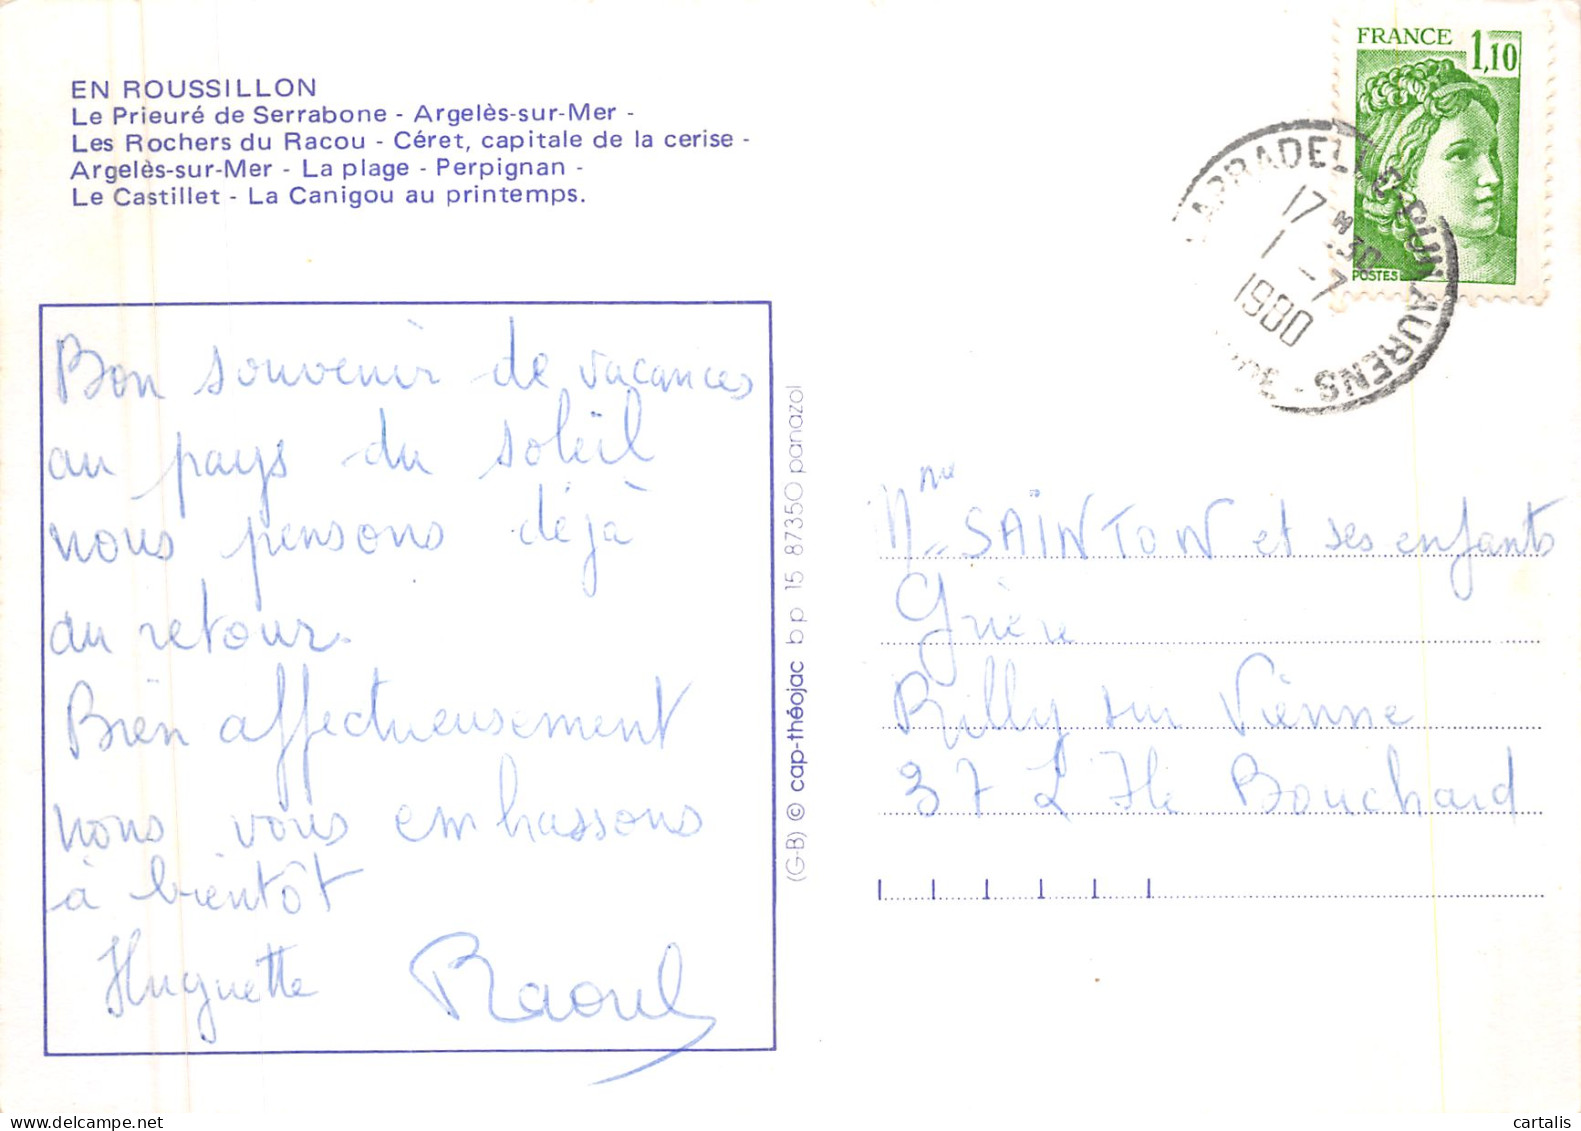 EN ROUSSILLON
Le Prieuré de Serrabone - Argelès-sur-Mer -
Les Rochers du Racou - Céret, capitale de la cerise -
Argelès-sur-Mer - La plage - Perpignan -
Le Castillet - La Canigou au printemps.
Bon souvenir de vacances
au pays du soleil
nous pensons déjà
au retour.
Bien affectueusement
nous vous embrassons
à bientôt
Huguette Raoul
(G-B) © cap-théojac bp 15 87350 panazol
FRANCE
1,10
POSTES
17 H
30
1 - 7
1980
AURENS
Mme SAINTON et ses enfants
Grière
Rilly sur Vienne
37 L'Ile Bouchard
cartalis
delcampe.net